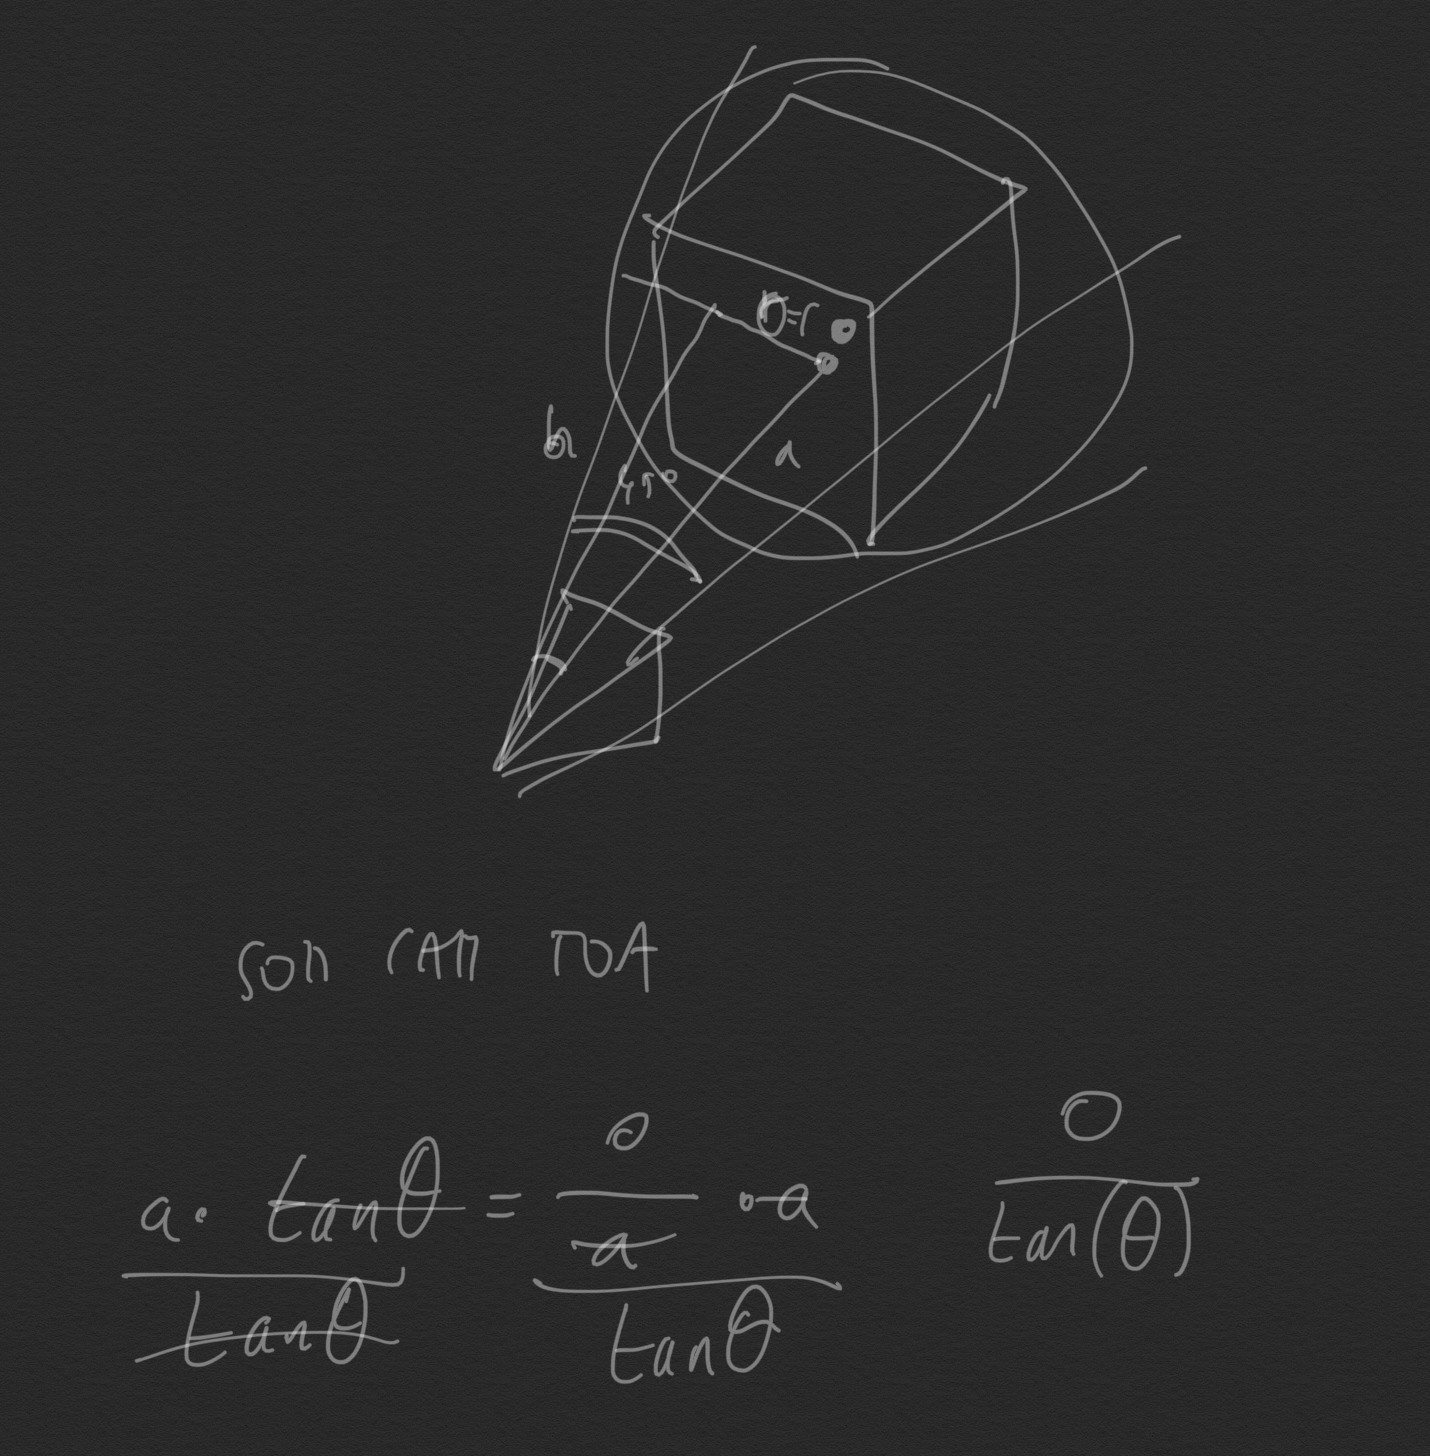 O=r
h
a
45°
SOH CAH TOA
a · tanθ / tanθ = o / a · a / tanθ
O / tan(θ)